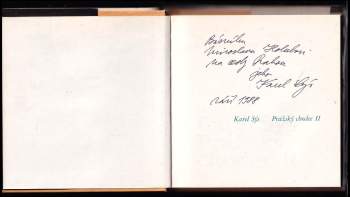 Básníku
Miroslavu Holubovi
na cesty Prahou
jeho
Karel Sýs
září 1988
Karel Sýs Pražský chodec II